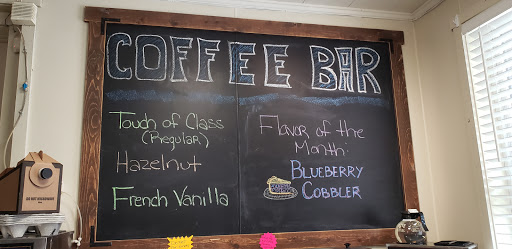 COFFEE BAR
Touch of Class
(Regular)
Hazelnut
French Vanilla
Flavor of the
Month:
BLUEBERRY
COBBLER